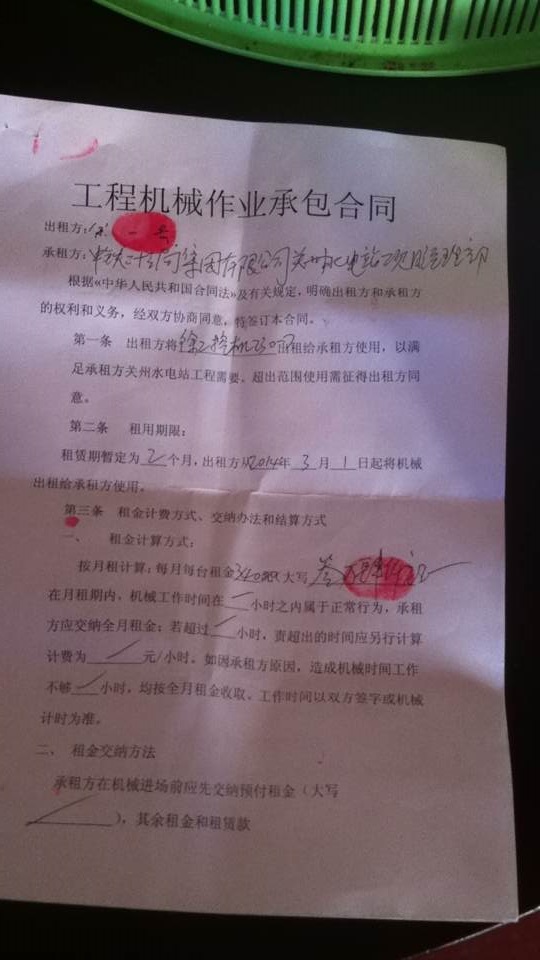 工程机械作业承包合同
出租方:
承租方:中铁二十局集团有限公司关州水电站项目管理部
根据《中华人民共和国合同法》及有关规定,明确出租方和承租方
的权利和义务,经双方协商同意,特签订本合同。
第一条 出租方将 出租给承租方使用,以满
足承租方关州水电站工程需要。超出范围使用需征得出租方同
意。
第二条 租用期限:
租赁期暂定为2个月,出租方从2014年3月1日起将机械
出租给承租方使用。
第三条 租金计费方式、交纳办法和结算方式
一、 租金计算方式:
按月租计算:每月每台租金 大写
在月租期内,机械工作时间在/小时之内属于正常行为,承租
方应交纳全月租金;若超过/小时,责超出的时间应另行计算
计费为/元/小时。如因承租方原因,造成机械时间工作
不够/小时,均按全月租金收取。工作时间以双方签字或机械
计时为准。
二、 租金交纳方法
承租方在机械进场前应先交纳预付租金(大写
/),其余租金和租赁款